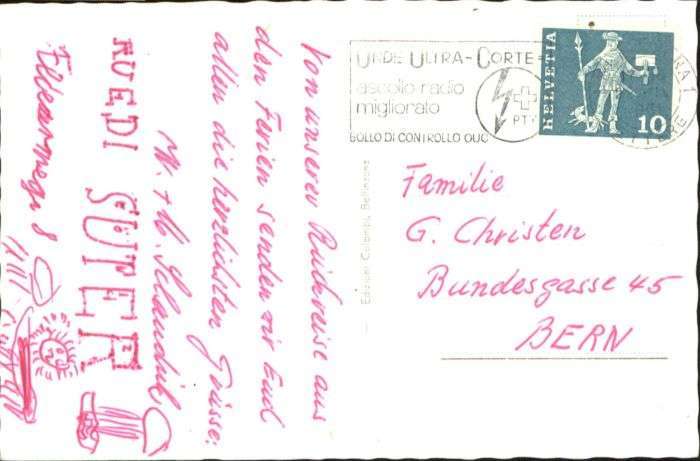 Von unserer Rückreise aus
den Ferien senden wir Euch
allen die herzlichsten Grüsse:
W. + M.
RUEDI SUTER
UNDE ULTRA-CORTE =
ascolto radio
migliorato
BOLLO DI CONTROLLO
PTT
HELVETIA
10
Familie
G. Christen
Bundesgasse 45
BERN
Edizioni Bellinzona